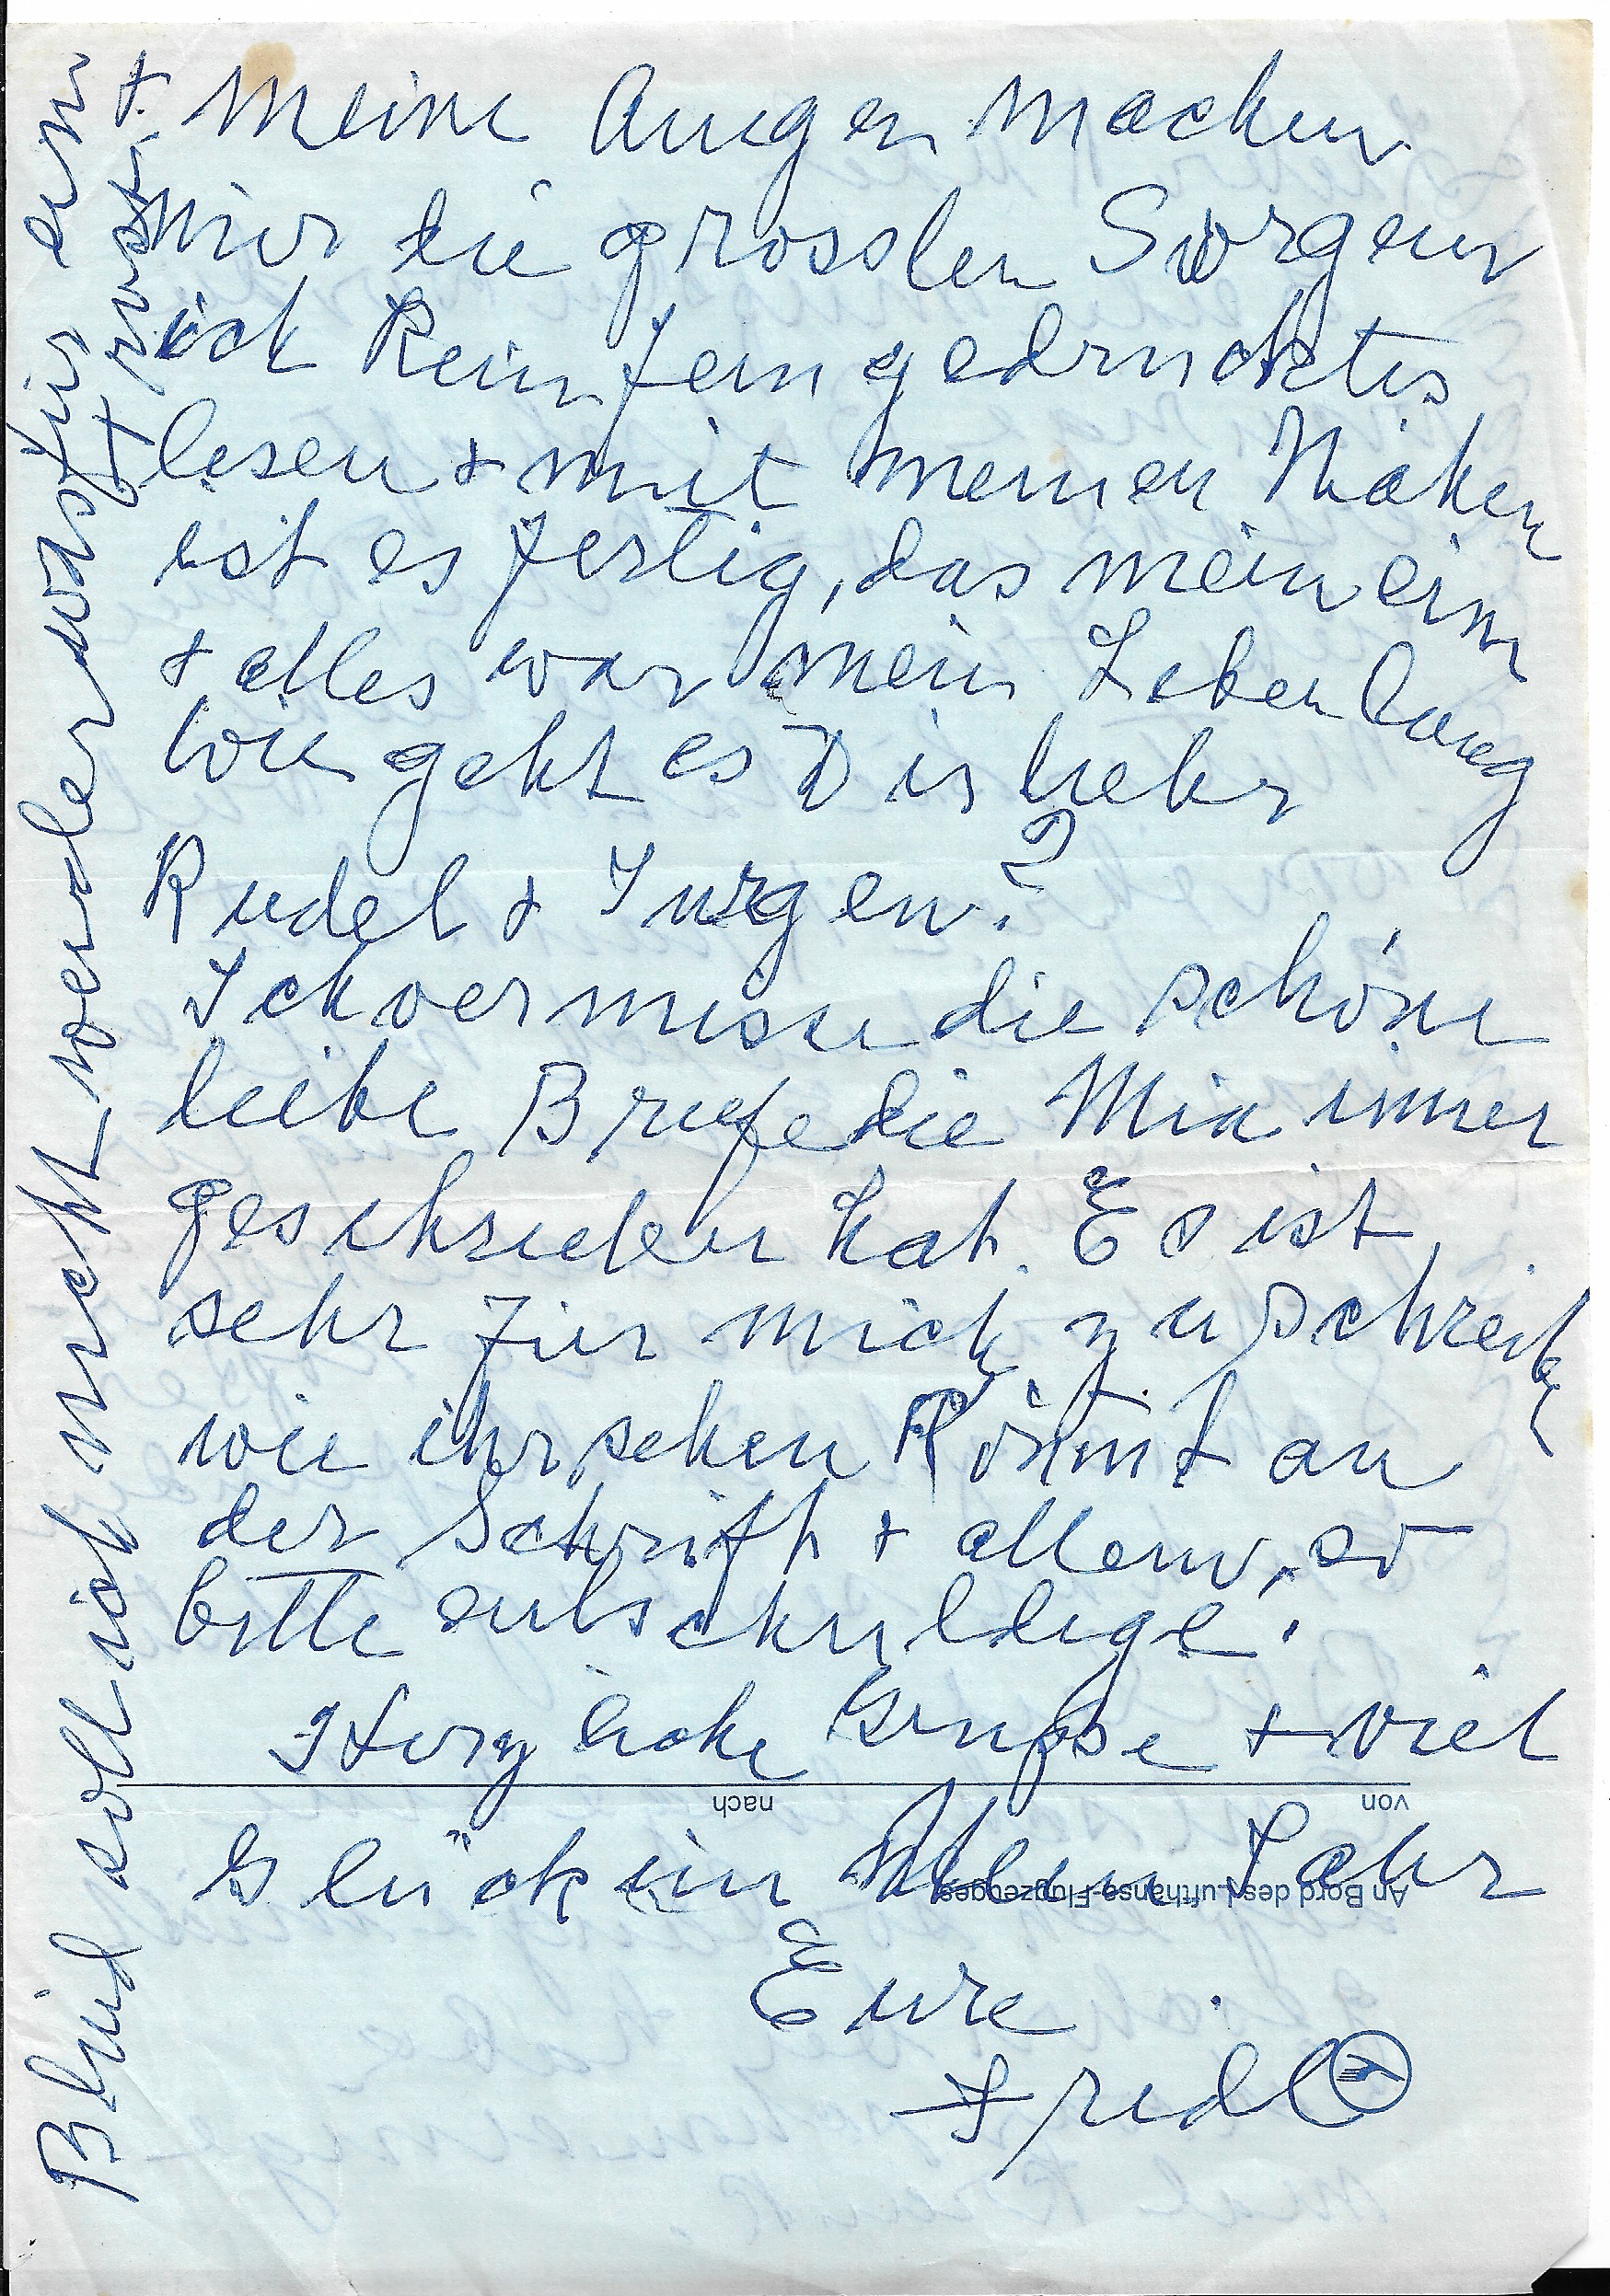 + Meine Augen machen
mir die grossten Sorgen
ich kein feingedrucktes
lesen + mit meinen Nähen
ist es fertig, das mein ein
+ alles war mein Leben lang
wie geht es Dir lieber
Rudel + Jurgen?
Ich vermisse die schöne
leibe Briefe die Mia immer
geschrieben hat. Es ist
sehr für mich zu schreiben
wie ihr sehen könnt an
der Schrift + allem, so
bitte entschuldige!
Herzliche Grüsse + viel
von nach
Glück im Neuen Jahr
An Bord des Lufthansa-Flugzeuges
Eure
Fridl
Blind soll ich nicht werden was für ein